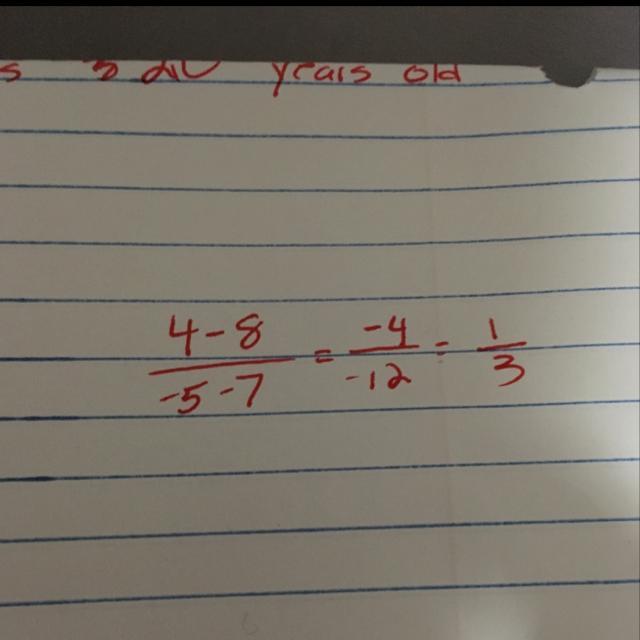 years old
4-8 / -5-7 = -4 / -12 = 1 / 3